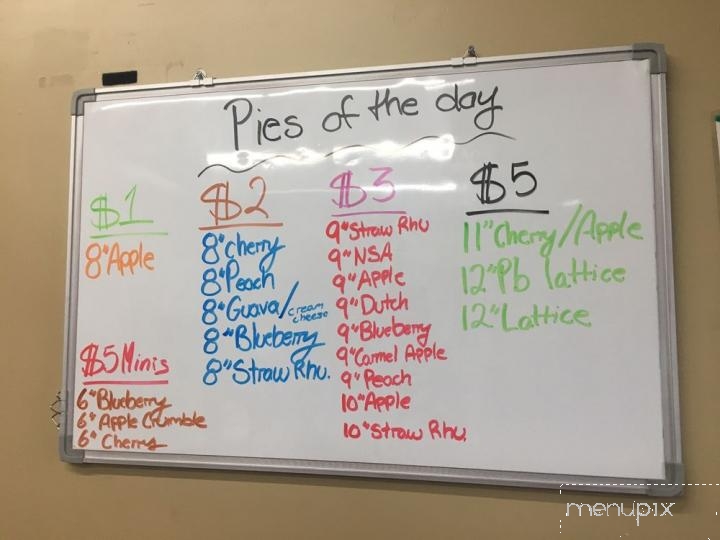 Pies of the day
$1
8" Apple
$5 Minis
6" Blueberry
6" Apple Crumble
6" Cherry
$2
8" cherry
8" Peach
8" Guava/cream cheese
8" Blueberry
8" Straw Rhu.
$3
9" Straw Rhu
9" NSA
9" Apple
9" Dutch
9" Blueberry
9" Carmel Apple
9" Peach
10" Apple
10" Straw Rhu.
$5
11" Cherry/Apple
12" Pb lattice
12" Lattice
menupix